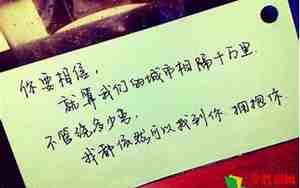 你要相信,
就算我们的城市相隔十万里.
不管绕多少弯,
我都依然可以找到你 拥抱你.